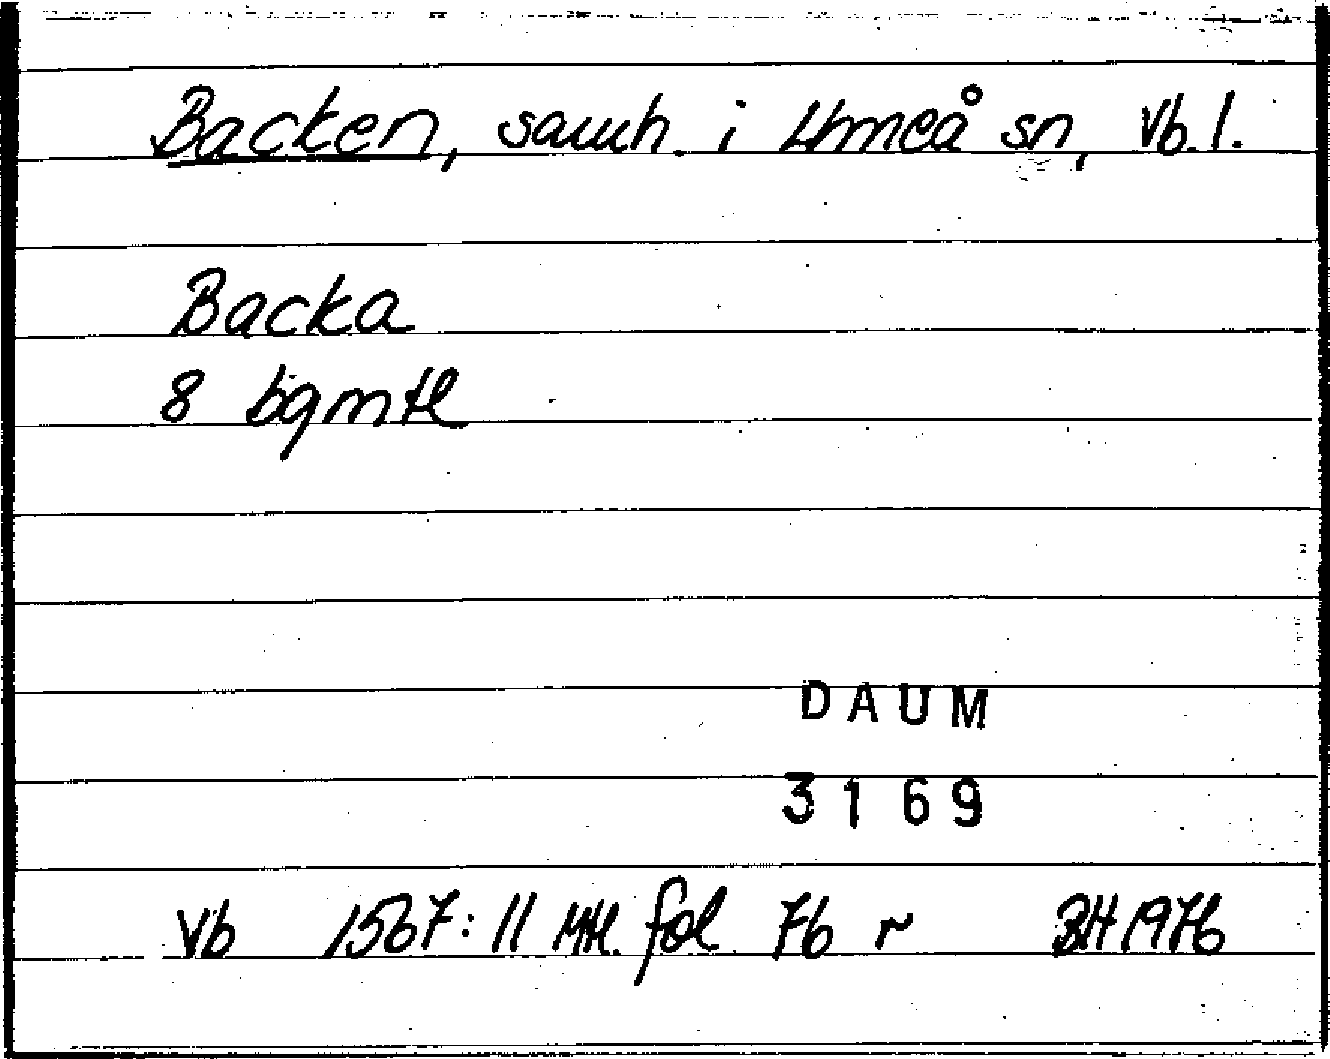 Backen, samh. i Umeå sn, Vb. l.
Backa
8 bgmtl
DAUM
3169
Vb 1567:11 Mtl. fol 76 r BH 1976